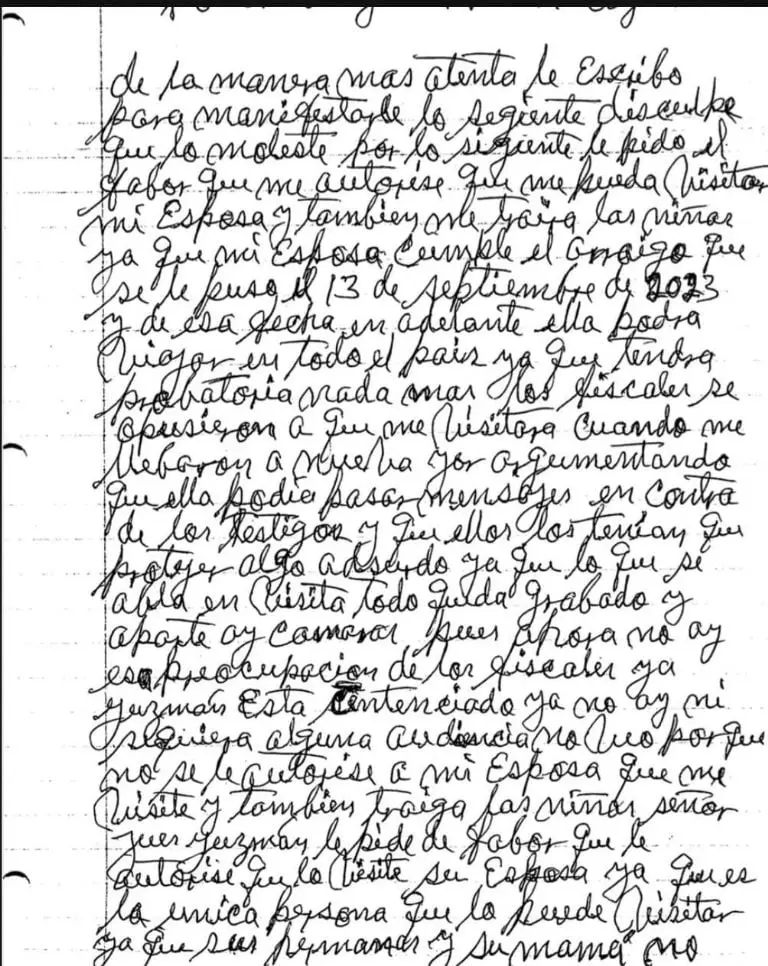 de la manera mas atenta le Escribo
para manifestarle lo segiente disculpe
que lo moleste por lo sigiente le pido el
fabor que me autorise que me pueda Visitar
mi Esposa y tambien me traiga las niñas
ya que mi Esposa cumple el arraigo que
se le puso el 13 de septiembre de 2023
y de esa fecha en adelante ella podra
Viajar en todo el pais ya que tendra
probatoria nada mas los fiscales se
opusieron a que me Visitara cuando me
llebaron a nueba yor argumentando
que ella podia pasar mensajes en contra
de los testigos y que ellos los tenian que
protejer algo adsurdo ya que lo que se
abla en Visita todo queda grabado y
aparte ay camaras pues ahora no ay
esa preocupacion de los fiscales ya
guzmán Esta Centenciado ya no ay ni
siquiera alguna audiencia no Veo porque
no se le autorise a mi Esposa que me
Visite y tambien traiga las niñas señor
jues guzmán le pide de fabor que le
autorise que lo Visite su Esposa ya que es
la unica persona que lo puede Visitar
ya que sus hermanas y su mamá no